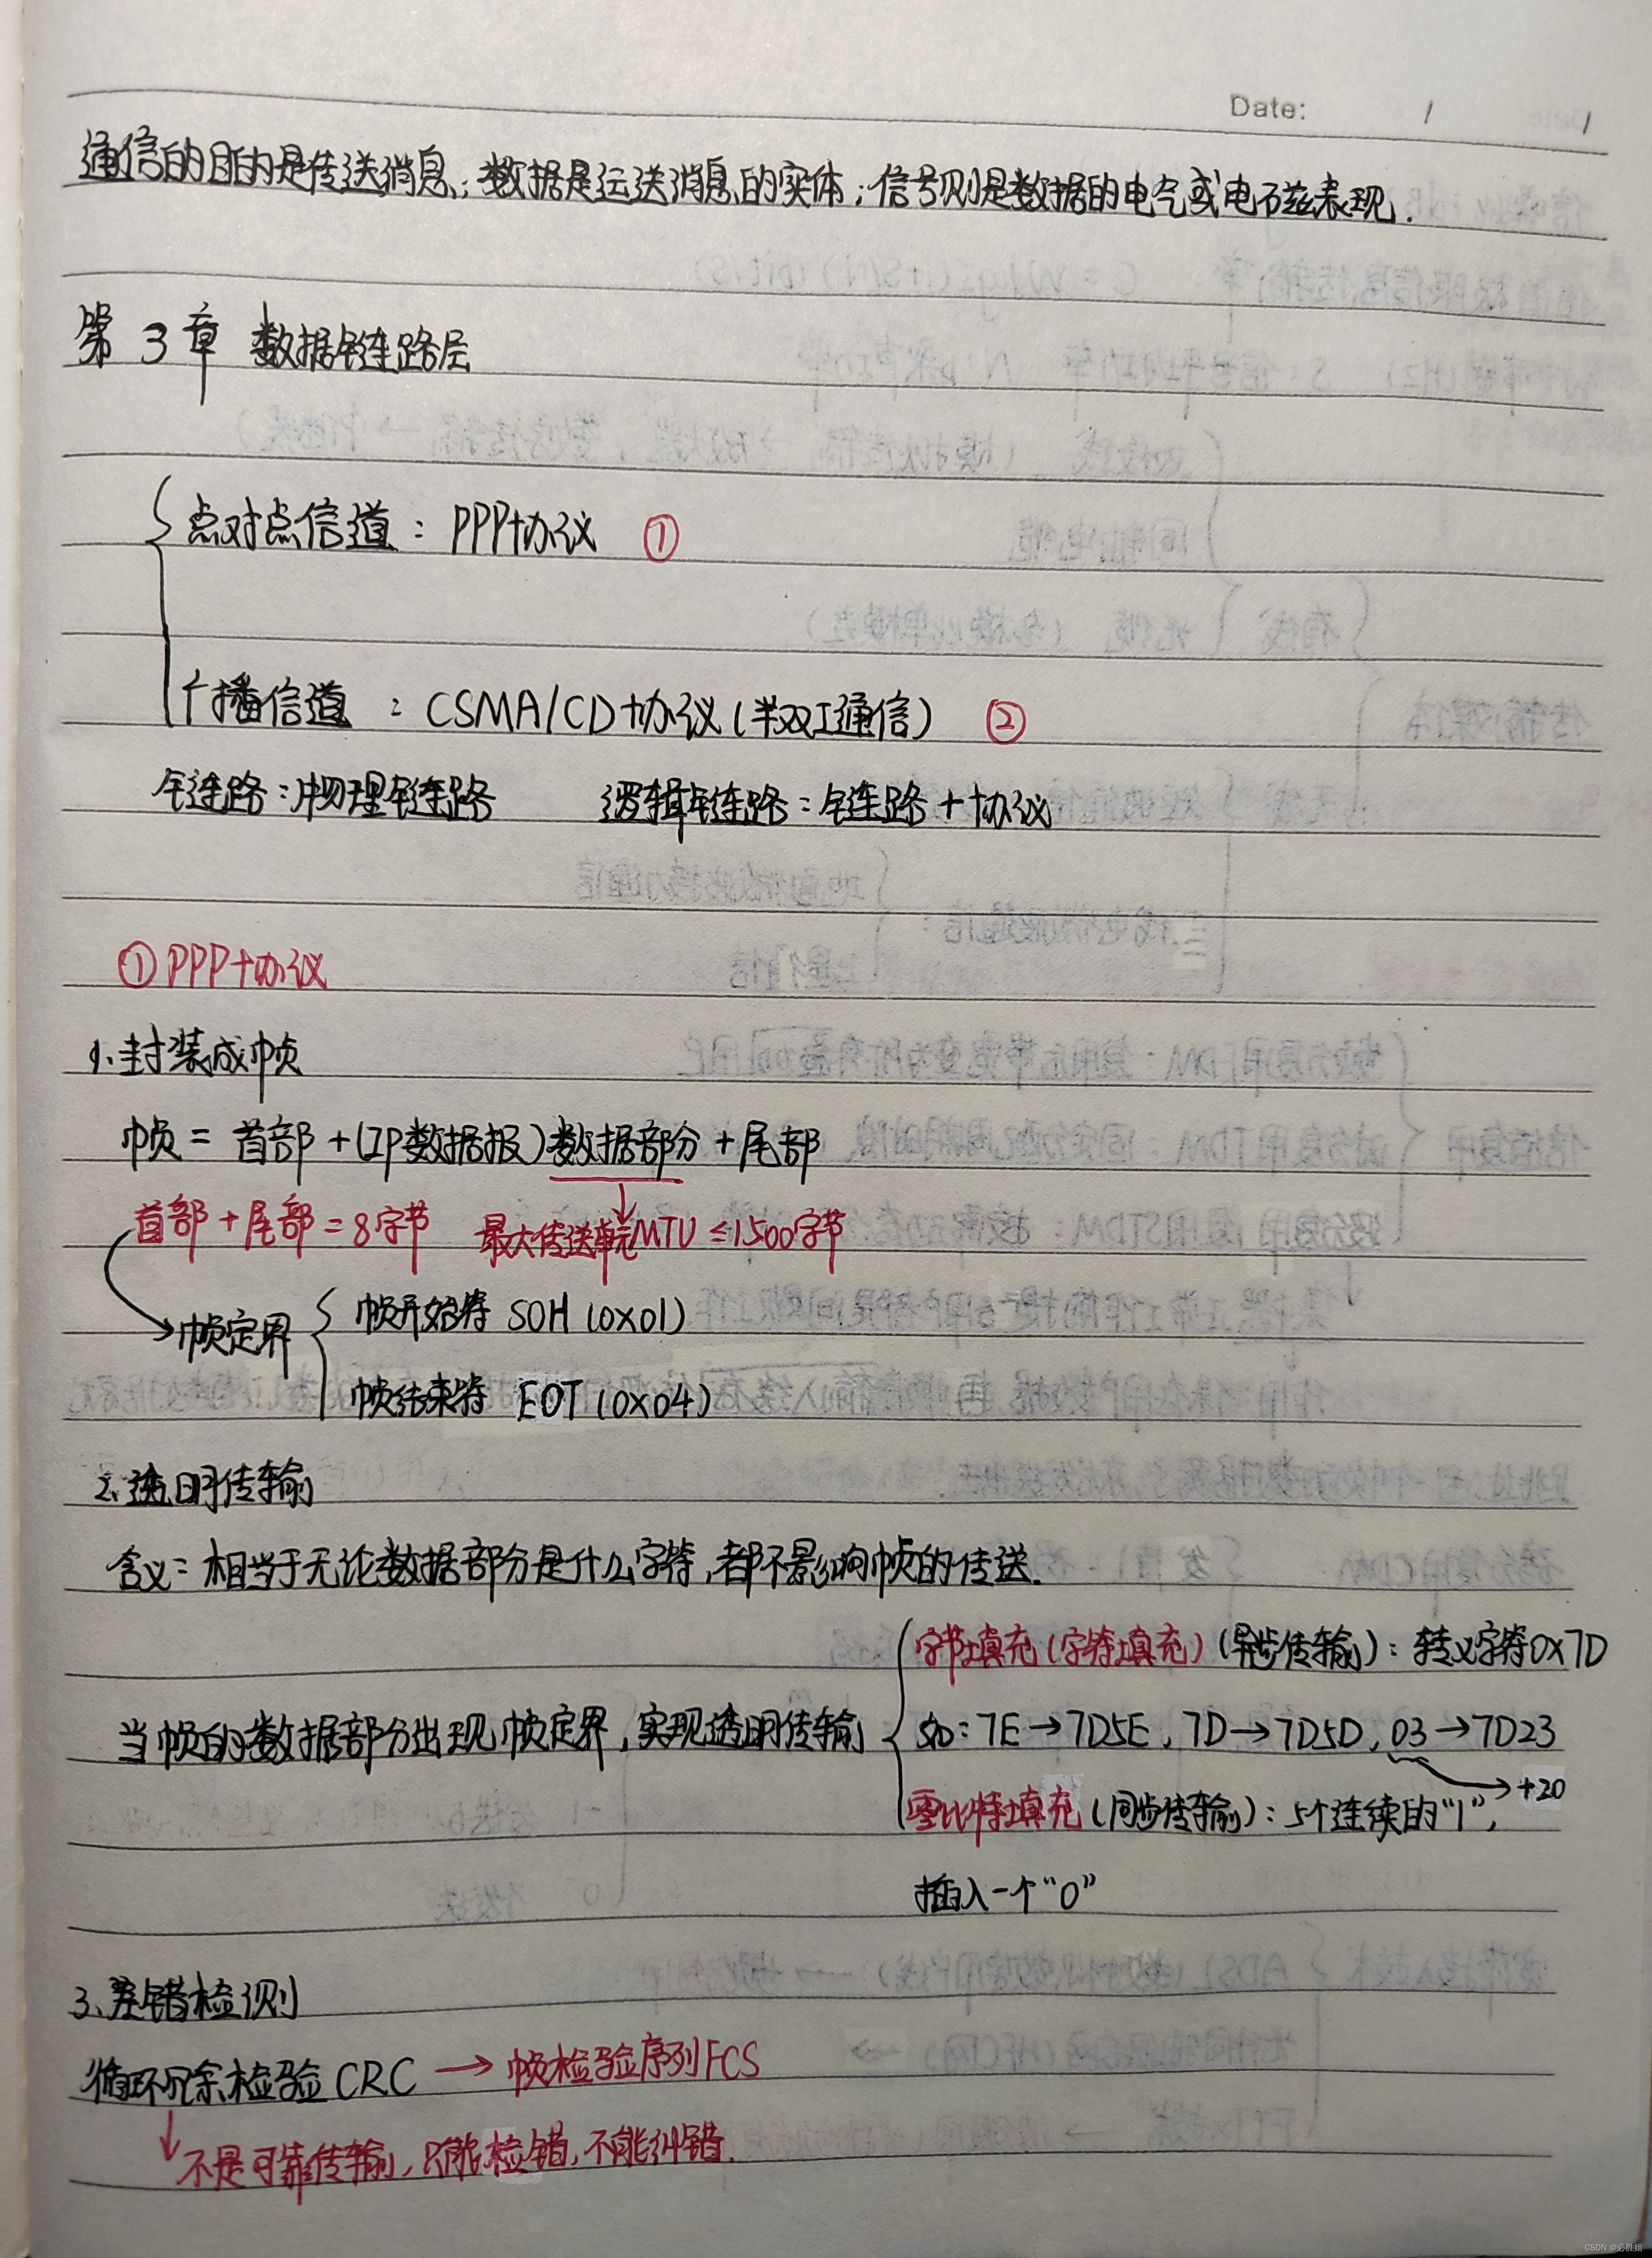 Date: / /
通信的目的是传送消息；数据是运送消息的实体；信号则是数据的电气或电磁表现.
第 3 章 数据链路层
点对点信道：PPP协议 ①
广播信道：CSMA/CD协议(半双工通信) ②
链路：物理链路 逻辑链路：链路+协议
①PPP协议
1、封装成帧
帧 = 首部+(IP数据报)数据部分+尾部
首部+尾部=8字节 最大传送单元MTU ≤1500字节
帧定界
帧开始符 SOH (0x01)
帧结束符 EOT (0x04)
2、透明传输
含义：相当于无论数据部分是什么字符,都不影响帧的传送.
当帧的数据部分出现帧定界,实现透明传输
字节填充(字符填充)(异步传输)：转义字符0x7D
如：7E→7D5E, 7D→7D5D, 03→7D23
→+20
零比特填充(同步传输)：5个连续的"1",
插入一个"0"
3、差错检测
循环冗余检验CRC → 帧检验序列FCS
↓不是可靠传输,只能检错,不能纠错.
CSDN @必胜姐